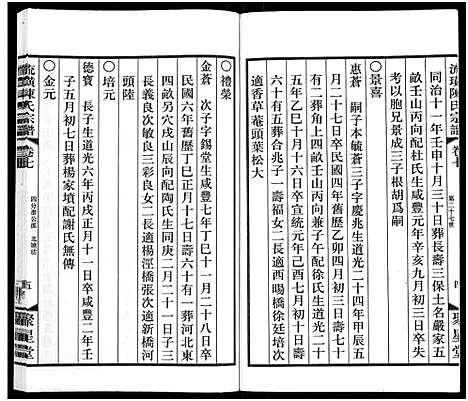 流璜陳氏宗譜 卷七 第二十七世 四 聚星堂
同治十一年壬申十月三十日葬長壽三保土名嚴家五
畝王山丙向配杜氏生咸豐元年辛亥九月初三日卒失
考以胞兄景成三子根胡爲嗣
○景喜
惠畲 嗣子本毓芳次子兆熊生道光二十四年甲辰五
月二十七日卒民國四年舊歷乙卯四月初三日壽七十
有二葬角上四畝壬山丙向兼子午配徐氏生道光二十
五年乙巳十月十六日卒宣統元年己酉七月初十日壽
六十有五葬合兆子一壽福女二長適西暘橋徐廷培次
適香草菴頭葉松大
○禮榮
金畲 次子字錫堂生咸豐七年丁巳十一月二十八日卒
民國六年舊歷丁巳正月十七日壽六十有一葬河北東
四畝另六戌山辰向配陶氏生同庚二月二十一日子三
長義良次敏良三彩良女二長適楊涇橋張次適新橋河
頭陸
○培元
德寶 長子生道光六年丙戌正月十一日卒咸豐二年壬
子五月初七日葬楊家墳配謝氏無傳
○金元
流璜陳氏宗譜 卷七 五 聚星堂